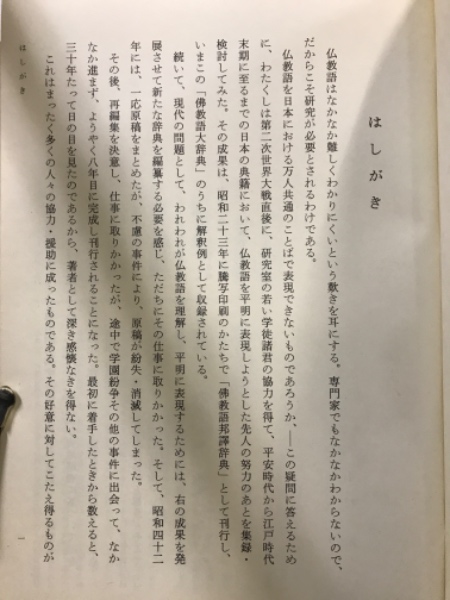 はしがき
仏教語はなかなか難しくわかりにくいという歎きを耳にする。専門家でもなかなかわからないので、
だからこそ研究が必要とされるわけである。
仏教語を日本における万人共通のことばで表現できないものであろうか、──この疑問に答えるため
に、わたくしは第二次世界大戦直後に、研究室の若い学徒諸君の協力を得て、平安時代から江戸時代
末期に至るまでの日本の典籍において、仏教語を平明に表現しようとした先人の努力のあとを集録・
検討してみた。その成果は、昭和二十三年に謄写印刷のかたちで「佛教語邦譯辞典」として刊行し、
いまこの「佛教語大辞典」のうちに解釈例として収録されている。
続いて、現代の問題として、われわれが仏教語を理解し、平明に表現するためには、右の成果を発
展させて新たな辞典を編纂する必要を感じ、ただちにその仕事に取りかかった。そして、昭和四十二
年には、一応原稿をまとめたが、不慮の事件により、原稿が紛失・消滅してしまった。
その後、再編集を決意し、仕事に取りかかったが、途中で学園紛争その他の事件に出会って、なか
なか進まず、ようやく八年目に完成し刊行されることになった。最初に着手したときから数えると、
三十年たって日の目を見たのであるから、著者として深き感懐なきを得ない。
これはまったく多くの人々の協力・援助に成ったものである。その好意に対してこたえ得るものが
はしがき
一